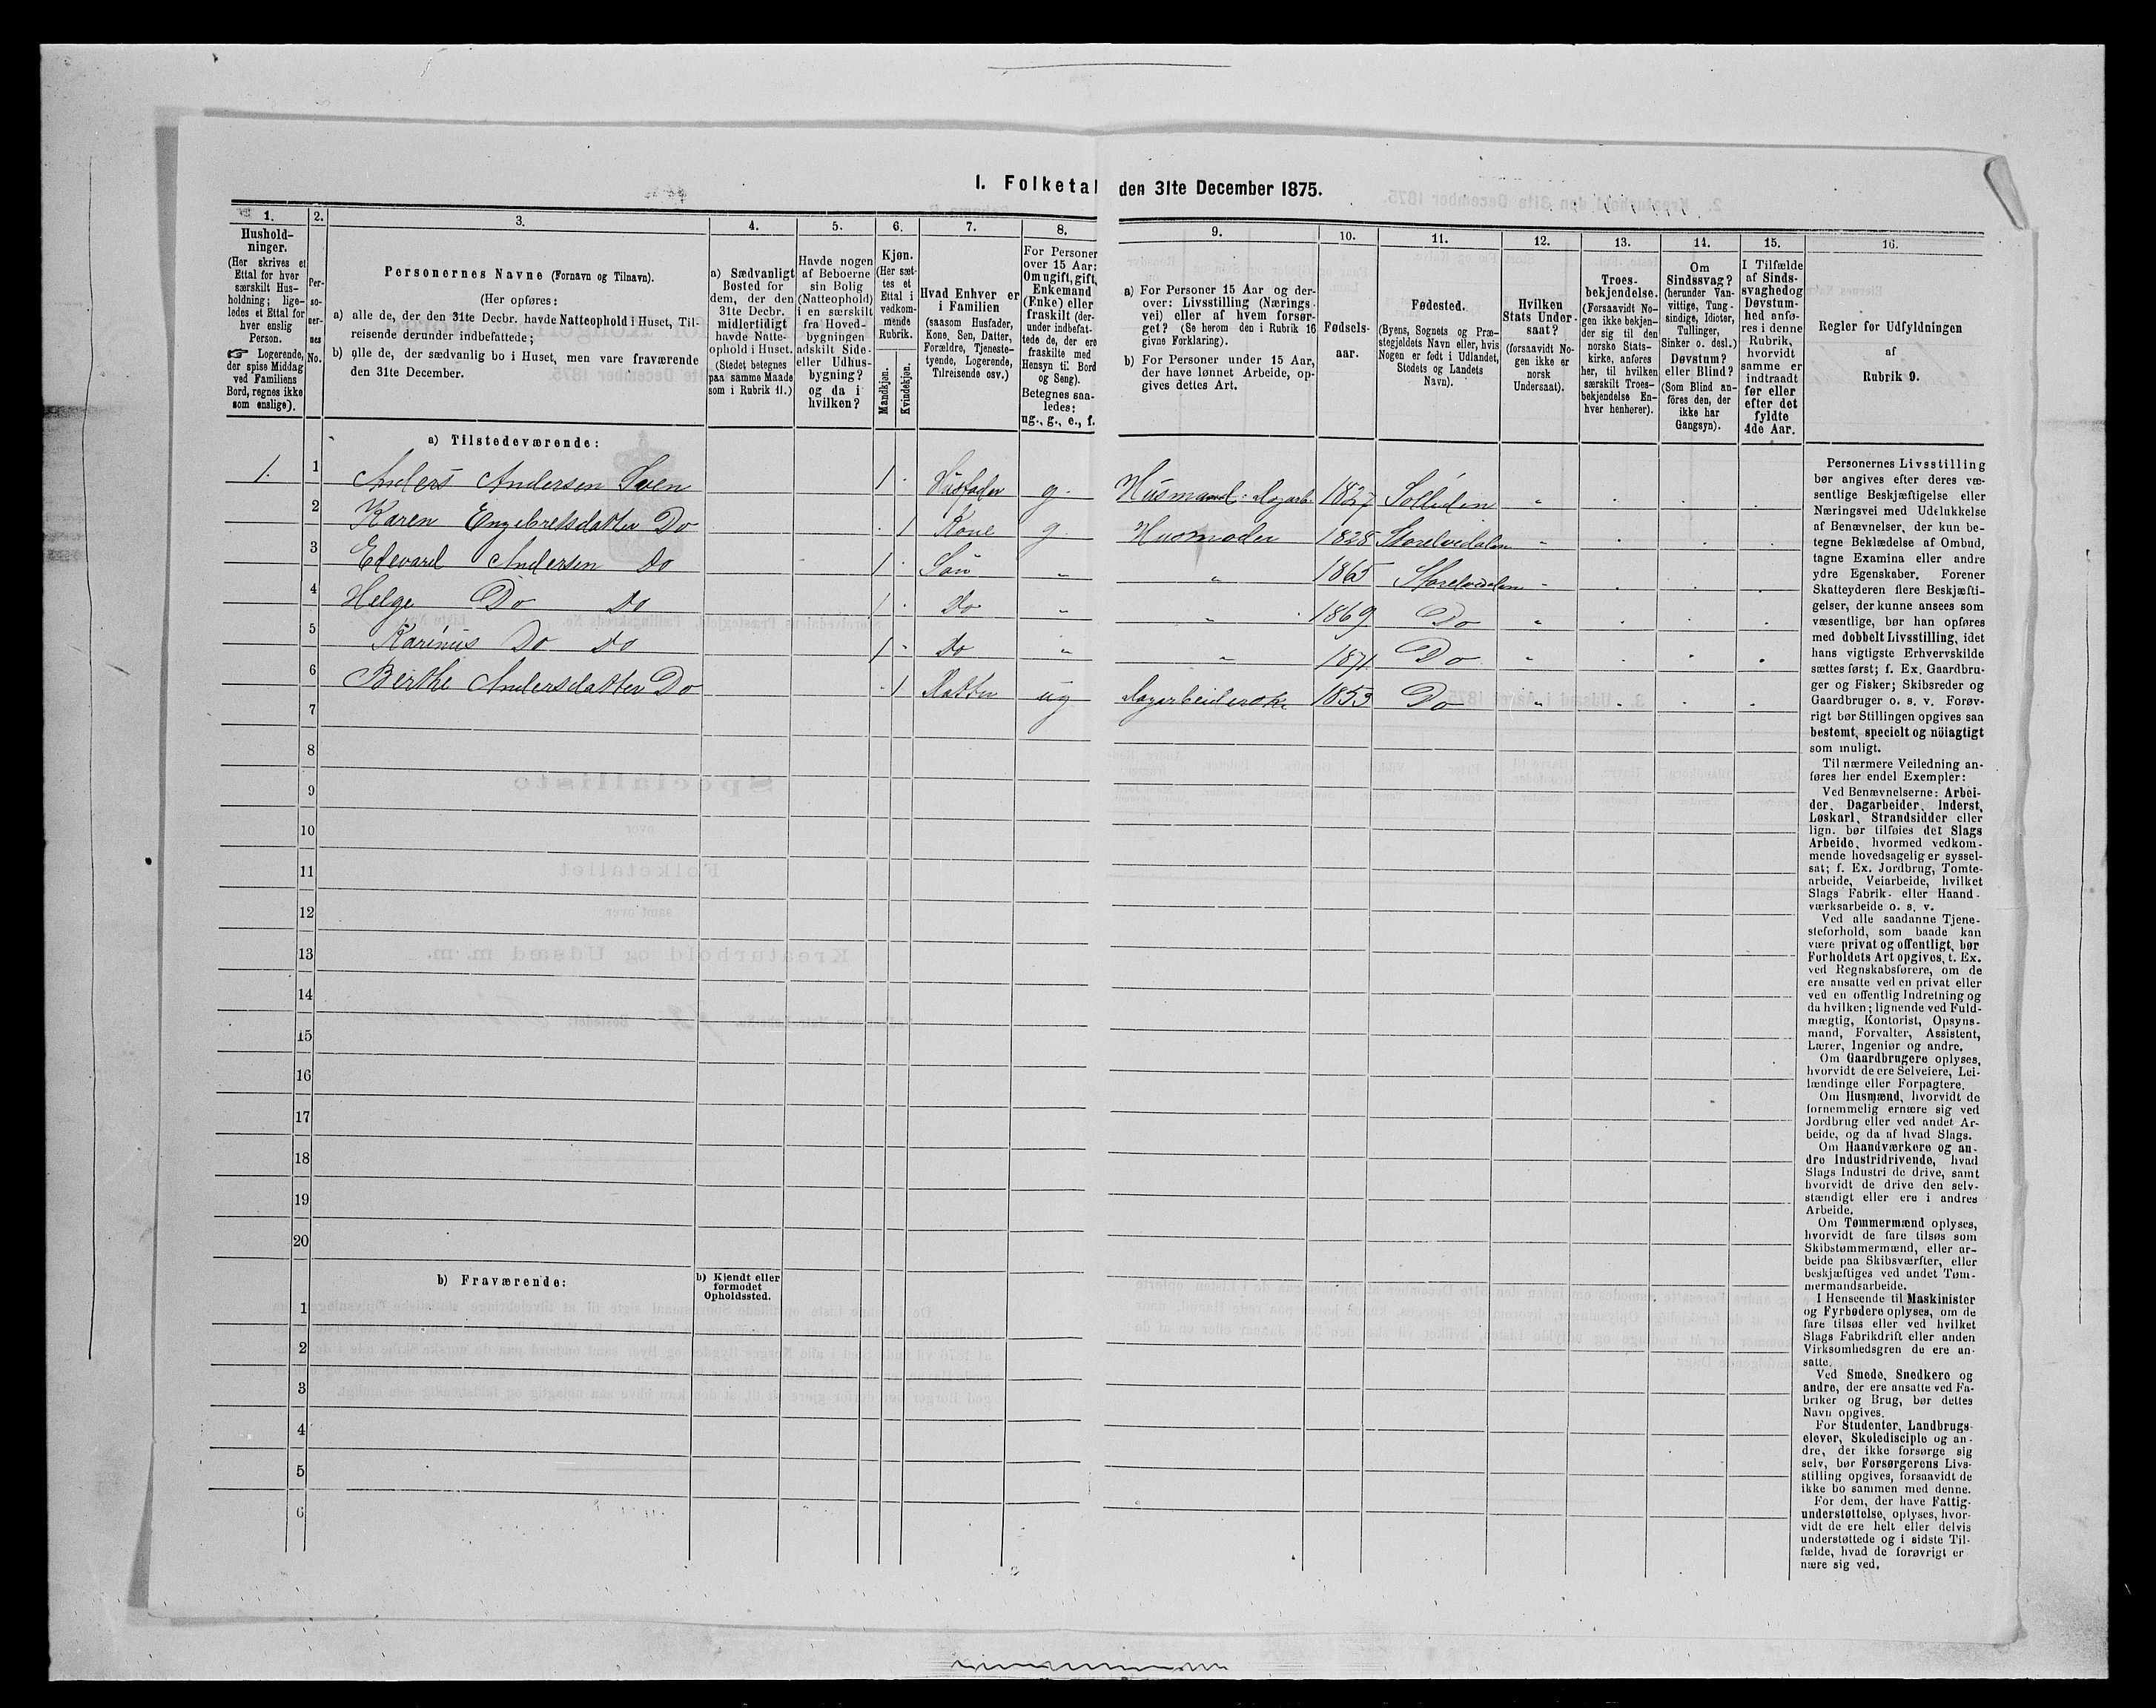 I. Folketal den 31te December 1875.
1. 2. 3. 4. 5. 6. 7. 8. 9. 10. 11. 12. 13. 14. 15. 16.
Hushold-
ninger.
(Her skrives et
Ettal for hver
særskilt Hus-
holdning; lige-
ledes et Ettal for
hver enslig
Person.
☞ Logerende,
der spise Middag
ved Familiens
Bord, regnes ikke
som enslige).
Per-
so-
ner-
nes
No.
Personernes Navne (Fornavn og Tilnavn).
(Her opføres:
a) alle de, der den 31te Decbr. havde Natteophold i Huset, Til-
reisende derunder indbefattede;
b) alle de, der sædvanlig bo i Huset, men vare fraværende
den 31te December.
a) Sædvanligt
Bosted for
dem, der den
31te Decbr.
midlertidigt
havde Natte-
ophold i Huset.
(Stedet betegnes
paa samme Maade
som i Rubrik 11.)
Havde nogen
af Beboerne
sin Bolig
(Natteophold)
i en særskilt
fra Hoved-
bygningen
adskilt Side-
eller Udhus-
bygning?
og da i
hvilken?
Kjøn.
(Her sæt-
tes et
Ettal i
vedkom-
mende
Rubrik.
Mandkjøn.
Kvindekjøn.
Hvad Enhver er
i Familien
(saasom Husfader,
Kone, Søn, Datter,
Forældre, Tjeneste-
tyende, Logerende,
Tilreisende osv.)
For Personer
over 15 Aar:
Om ugift, gift,
Enkemand
(Enke) eller
fraskilt (der-
under indbefat-
tede de, der ere
fraskilte med
Hensyn til Bord
og Seng).
Betegnes saa-
ledes:
ug., g., e., f.
a) For Personer 15 Aar og der-
over: Livsstilling (Nærings-
vei) eller af hvem forsør-
get? (Se herom den i Rubrik 16
givne Forklaring).
b) For Personer under 15 Aar,
der have lønnet Arbeide, op-
gives dettes Art.
Fødsels-
aar.
Fødested.
(Byens, Sognets og Præ-
stegjeldets Navn eller, hvis
Nogen er født i Udlandet,
Stedets og Landets
Navn).
Hvilken
Stats Under-
saat?
(forsaavidt No-
gen ikke er
norsk
Undersaat).
Troes-
bekjendelse.
(Forsaavidt No-
gen ikke bekjen-
der sig til den
norske Stats-
kirke, anføres
her, til hvilken
særskilt Troes-
bekjendelse En-
hver henhører).
Om
Sindssvag?
(herunder Van-
vittige, Tung-
sindige, Idioter,
Tullinger,
Sinker o. desl.)
Døvstum?
eller Blind?
(Som Blind an-
föres den, der
ikke har
Gangsyn).
I Tilfælde
af Sinds-
svaghed og
Døvstum-
hed anfø-
res i denne
Rubrik,
hvorvidt
samme er
indtraadt
før eller
efter det
fyldte
4de Aar.
Regler for Udfyldningen
af
Rubrik 9.
a) Tilstedeværende:
1. 1 Anders Andersen 1 . Husfader g. Husmand: Dagarb. 1827 Solliden " . . .
2 Karen Engebretsdatter Do . 1 Kone g. Husmoder 1828 Storelvedalen " . . .
3 Edevard Andersen Do 1 . Søn " " 1865 Storelvedalen " . . .
4 Helge Do Do 1 . Do " " 1869 Do " . . .
5 Karinus Do Do 1 . Do " " 1871 Do " . . .
6 Berthe Andersdatter Do . 1 Datter ug 1853 Do " . . .
7
8
9
10
11
12
13
14
15
16
17
18
19
20
b) Fraværende:
b) Kjendt eller
formodet
Opholdssted.
1
2
3
4
5
6
Personernes Livsstilling
bør angives efter deres væ-
sentlige Beskjæftigelse eller
Næringsvei med Udelukkelse
af Benævnelser, der kun be-
tegne Beklædelse af Ombud,
tagne Examina eller andre
ydre Egenskaber. Forener
Skatteyderen flere Beskjæfti-
gelser, der kunne ansees som
væsentlige, bør han opføres
med dobbelt Livsstilling, idet
hans vigtigste Erhvervskilde
sættes først; f. Ex. Gaardbru-
ger og Fisker; Skibsreder og
Gaardbruger o. s. v. Forøv-
rigt bør Stillingen opgives saa
bestemt, specielt og nöiagtigt
som muligt.
Til nærmere Veiledning an-
føres her endel Exempler:
Ved Benævnelserne: Arbei-
der, Dagarbeider, Inderst,
Løskarl, Strandsidder eller
lign. bør tilføies det Slags
Arbeide, hvormed vedkom-
mende hovedsagelig er syssel-
sat; f. Ex. Jordbrug, Tomte-
arbeide, Veiarbeide, hvilket
Slags Fabrik- eller Haand-
værksarbeide o. s. v.
Ved alle saadanne Tjene-
steforhold, som baade kan
være privat og offentligt, bør
Forholdets Art opgives, t. Ex.
ved Regnskabsførere, om de
ere ansatte ved en privat eller
ved en offentlig Indretning og
da hvilken; lignende ved Fuld-
mægtig, Kontorist, Opsyns-
mand, Forvalter, Assistent,
Lærer, Ingeniør og andre.
Om Gaardbrugere oplyses,
hvorvidt de ere Selveiere, Lei-
lændinge eller Forpagtere.
Om Husmænd, hvorvidt de
fornemmelig ernære sig ved
Jordbrug eller ved andet Ar-
beide, og da af hvad Slags.
Om Haandværkere og an-
dre Industridrivende, hvad
Slags Industri de drive, samt
hvorvidt de drive den selv-
stændigt eller ere i andres
Arbeide.
Om Tømmermænd oplyses,
hvorvidt de fare tilsøs som
Skibstømmermænd, eller ar-
beide paa Skibsværfter, eller
beskjæftiges ved andet Tøm-
mermandsarbeide.
I Henseende til Maskinister
og Fyrbødere oplyses, om de
fare tilsøs eller ved hvilket
Slags Fabrikdrift eller anden
Virksomhedsgren de ere an-
satte.
Ved Smede, Snedkere og
andre, der ere ansatte ved Fa-
briker og Brug, bør dettes
Navn opgives.
For Studenter, Landbrugs-
elever, Skoledisciple og an-
dre, der ikke forsørge sig
selv, bør Forsørgerens Livs-
stilling opgives, forsaavidt de
ikke bo sammen med denne.
For dem, der have Fattig-
understøttelse, oplyses, hvor-
vidt de ere helt eller delvis
understøttede og i sidste Til-
fælde, hvad de forøvrigt er
nære sig ved.